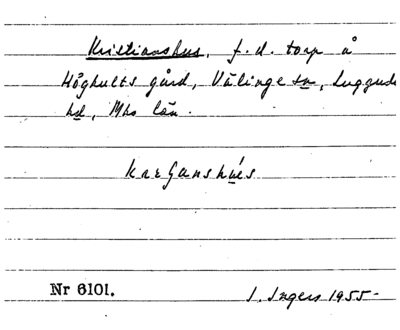 Kristianshus, f.d. torp å
Höghults gård, Välinge sn, Luggude
hd, Mhs län.
Nr 6101.
I. Ingers 1955-